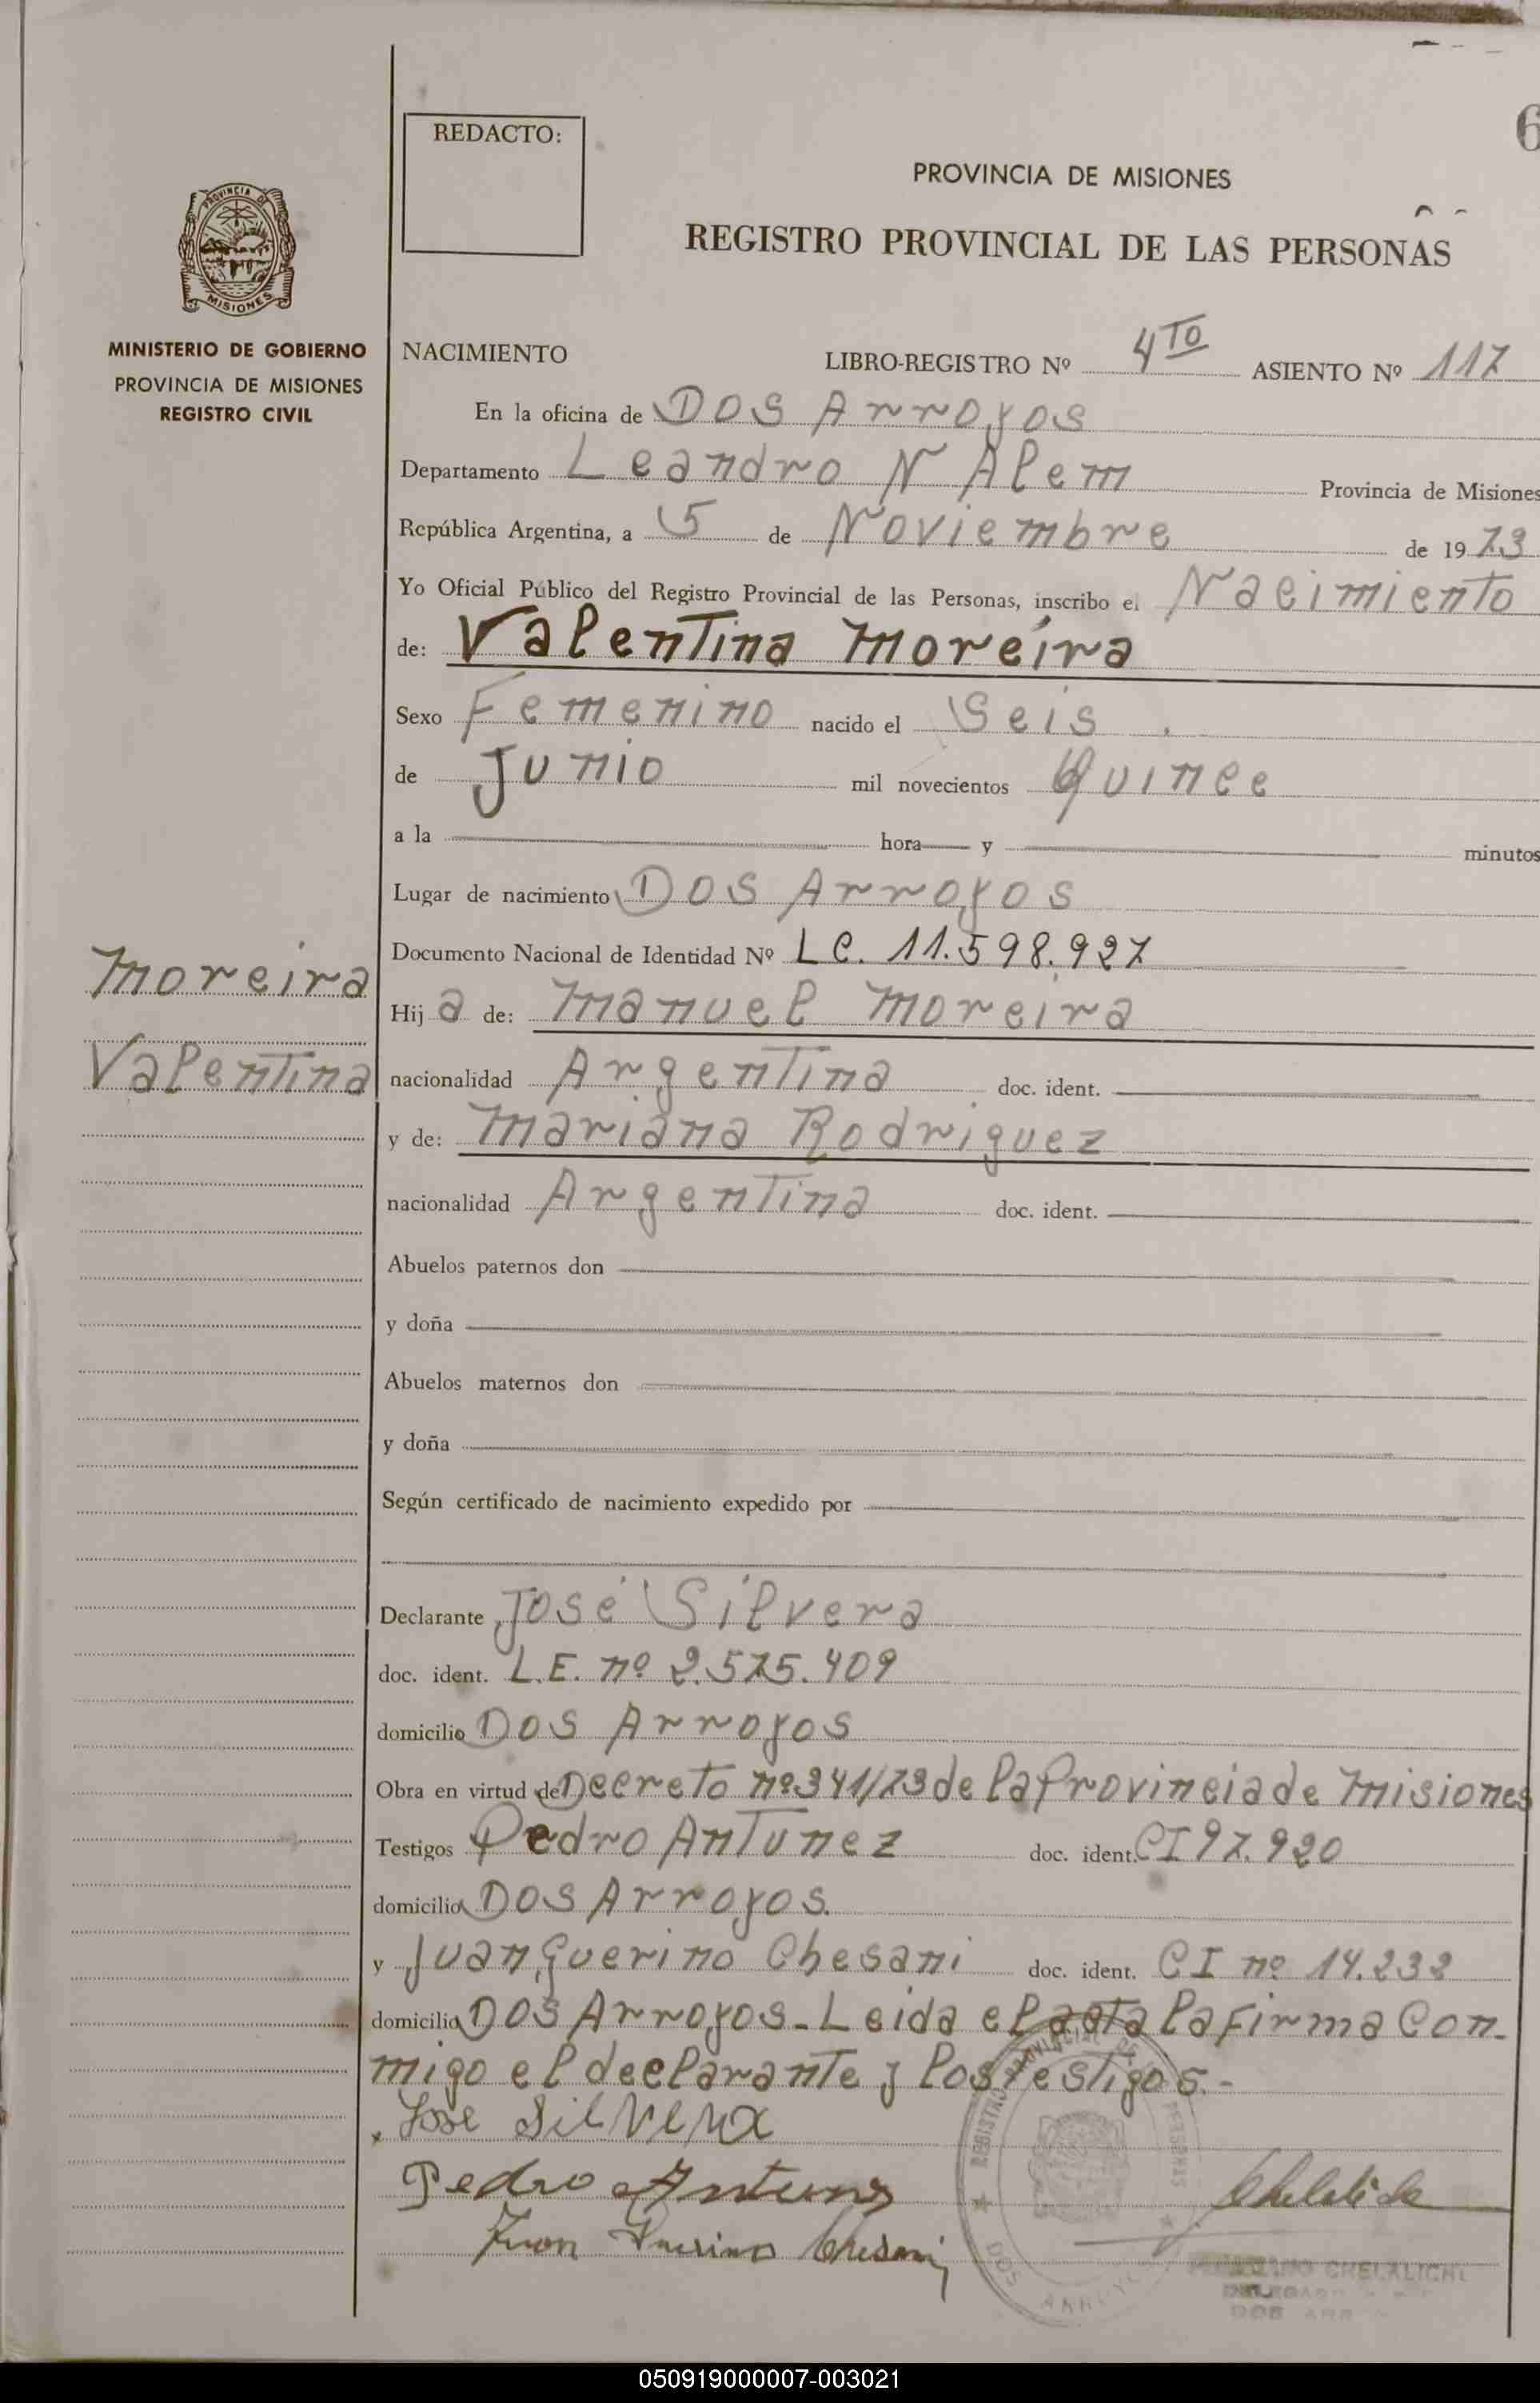 6
REDACTO:
PROVINCIA DE MISIONES
REGISTRO PROVINCIAL DE LAS PERSONAS
PROVINCIA DE
MISIONES
MINISTERIO DE GOBIERNO
PROVINCIA DE MISIONES
REGISTRO CIVIL
NACIMIENTO LIBRO-REGISTRO Nº 4TO ASIENTO Nº 117
En la oficina de Dos Arroyos
Departamento Leandro N Alem Provincia de Misiones
República Argentina, a 5 de Noviembre de 1973
Yo Oficial Público del Registro Provincial de las Personas, inscribo el Nacimiento
de: Valentina Moreira
Sexo Femenino nacido el Seis
de Junio mil novecientos Quince
a la hora y minutos
Lugar de nacimiento Dos Arroyos
Documento Nacional de Identidad Nº LC. 11.598.927
Moreira
Valentina
Hija de: Manuel Moreira
nacionalidad Argentina doc. ident.
y de: Mariana Rodriguez
nacionalidad Argentina doc. ident.
Abuelos paternos don
y doña
Abuelos maternos don
y doña
Según certificado de nacimiento expedido por
Declarante José Silvera
doc. ident. L.E. nº 2.575.409
domicilio Dos Arroyos
Obra en virtud de Decreto nº 341/73 de la Provincia de Misiones
Testigos Pedro Antunez doc. ident. CI 97.920
domicilio Dos Arroyos.
y Juan Guerino Chesani doc. ident. CI nº 14.232
domicilio Dos Arroyos - Leida el acta la firma con-
migo el declarante y los testigos.-
Jose Silvera
Pedro Antunes
Juan Guerino Chesani
REGISTRO PROVINCIAL DE PERSONAS
DOS ARROYOS
CHELALICHE
DOS ARR
050919000007-003021